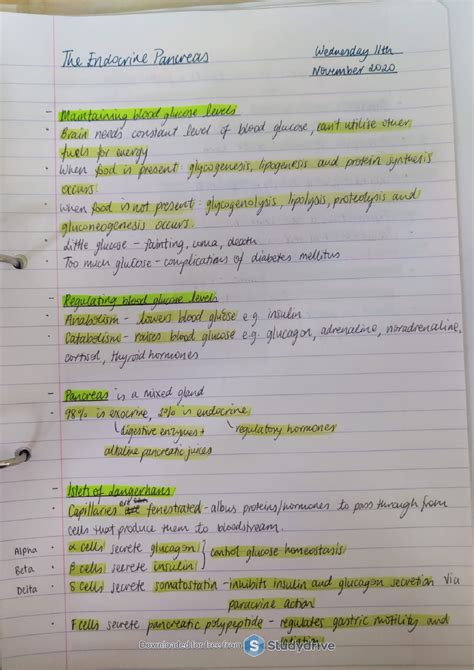 The Endocrine Pancreas
Wednesday 11th
November 2020
- Maintaining blood glucose levels
· Brain needs constant level of blood glucose, can't utilise other
fuels for energy
· When food is present: glycogenesis, lipogenesis and protein synthesis
occurs.
· When food is not present: glycogenolysis, lipolysis, proteolysis and
gluconeogenesis occurs.
· Little glucose - fainting, coma, death
· Too much glucose - complications of diabetes mellitus
- Regulating blood glucose levels
· Anabolism - lowers blood glucose e.g. insulin
· Catabolism - raises blood glucose e.g. glucagon, adrenaline, noradrenaline,
cortisol, thyroid hormones
- Pancreas is a mixed gland
· 98% is exocrine, is endocrine
digestive enzymes + regulatory hormones
alkaline pancreatic juices
- Islets of Langerhans
· Capillaries are fenestrated - allows proteins/hormones to pass through from
cells that produce them to bloodstream.
Alpha · α cells secrete glucagon } control glucose homeostasis
Beta · β cells secrete insulin
Delta · δ cells secrete somatostatin - inhibits insulin and glucagon secretion via
paracrine action
· F cells secrete pancreatic polypeptide - regulates gastric motility and
Downloaded for free from Studydrive